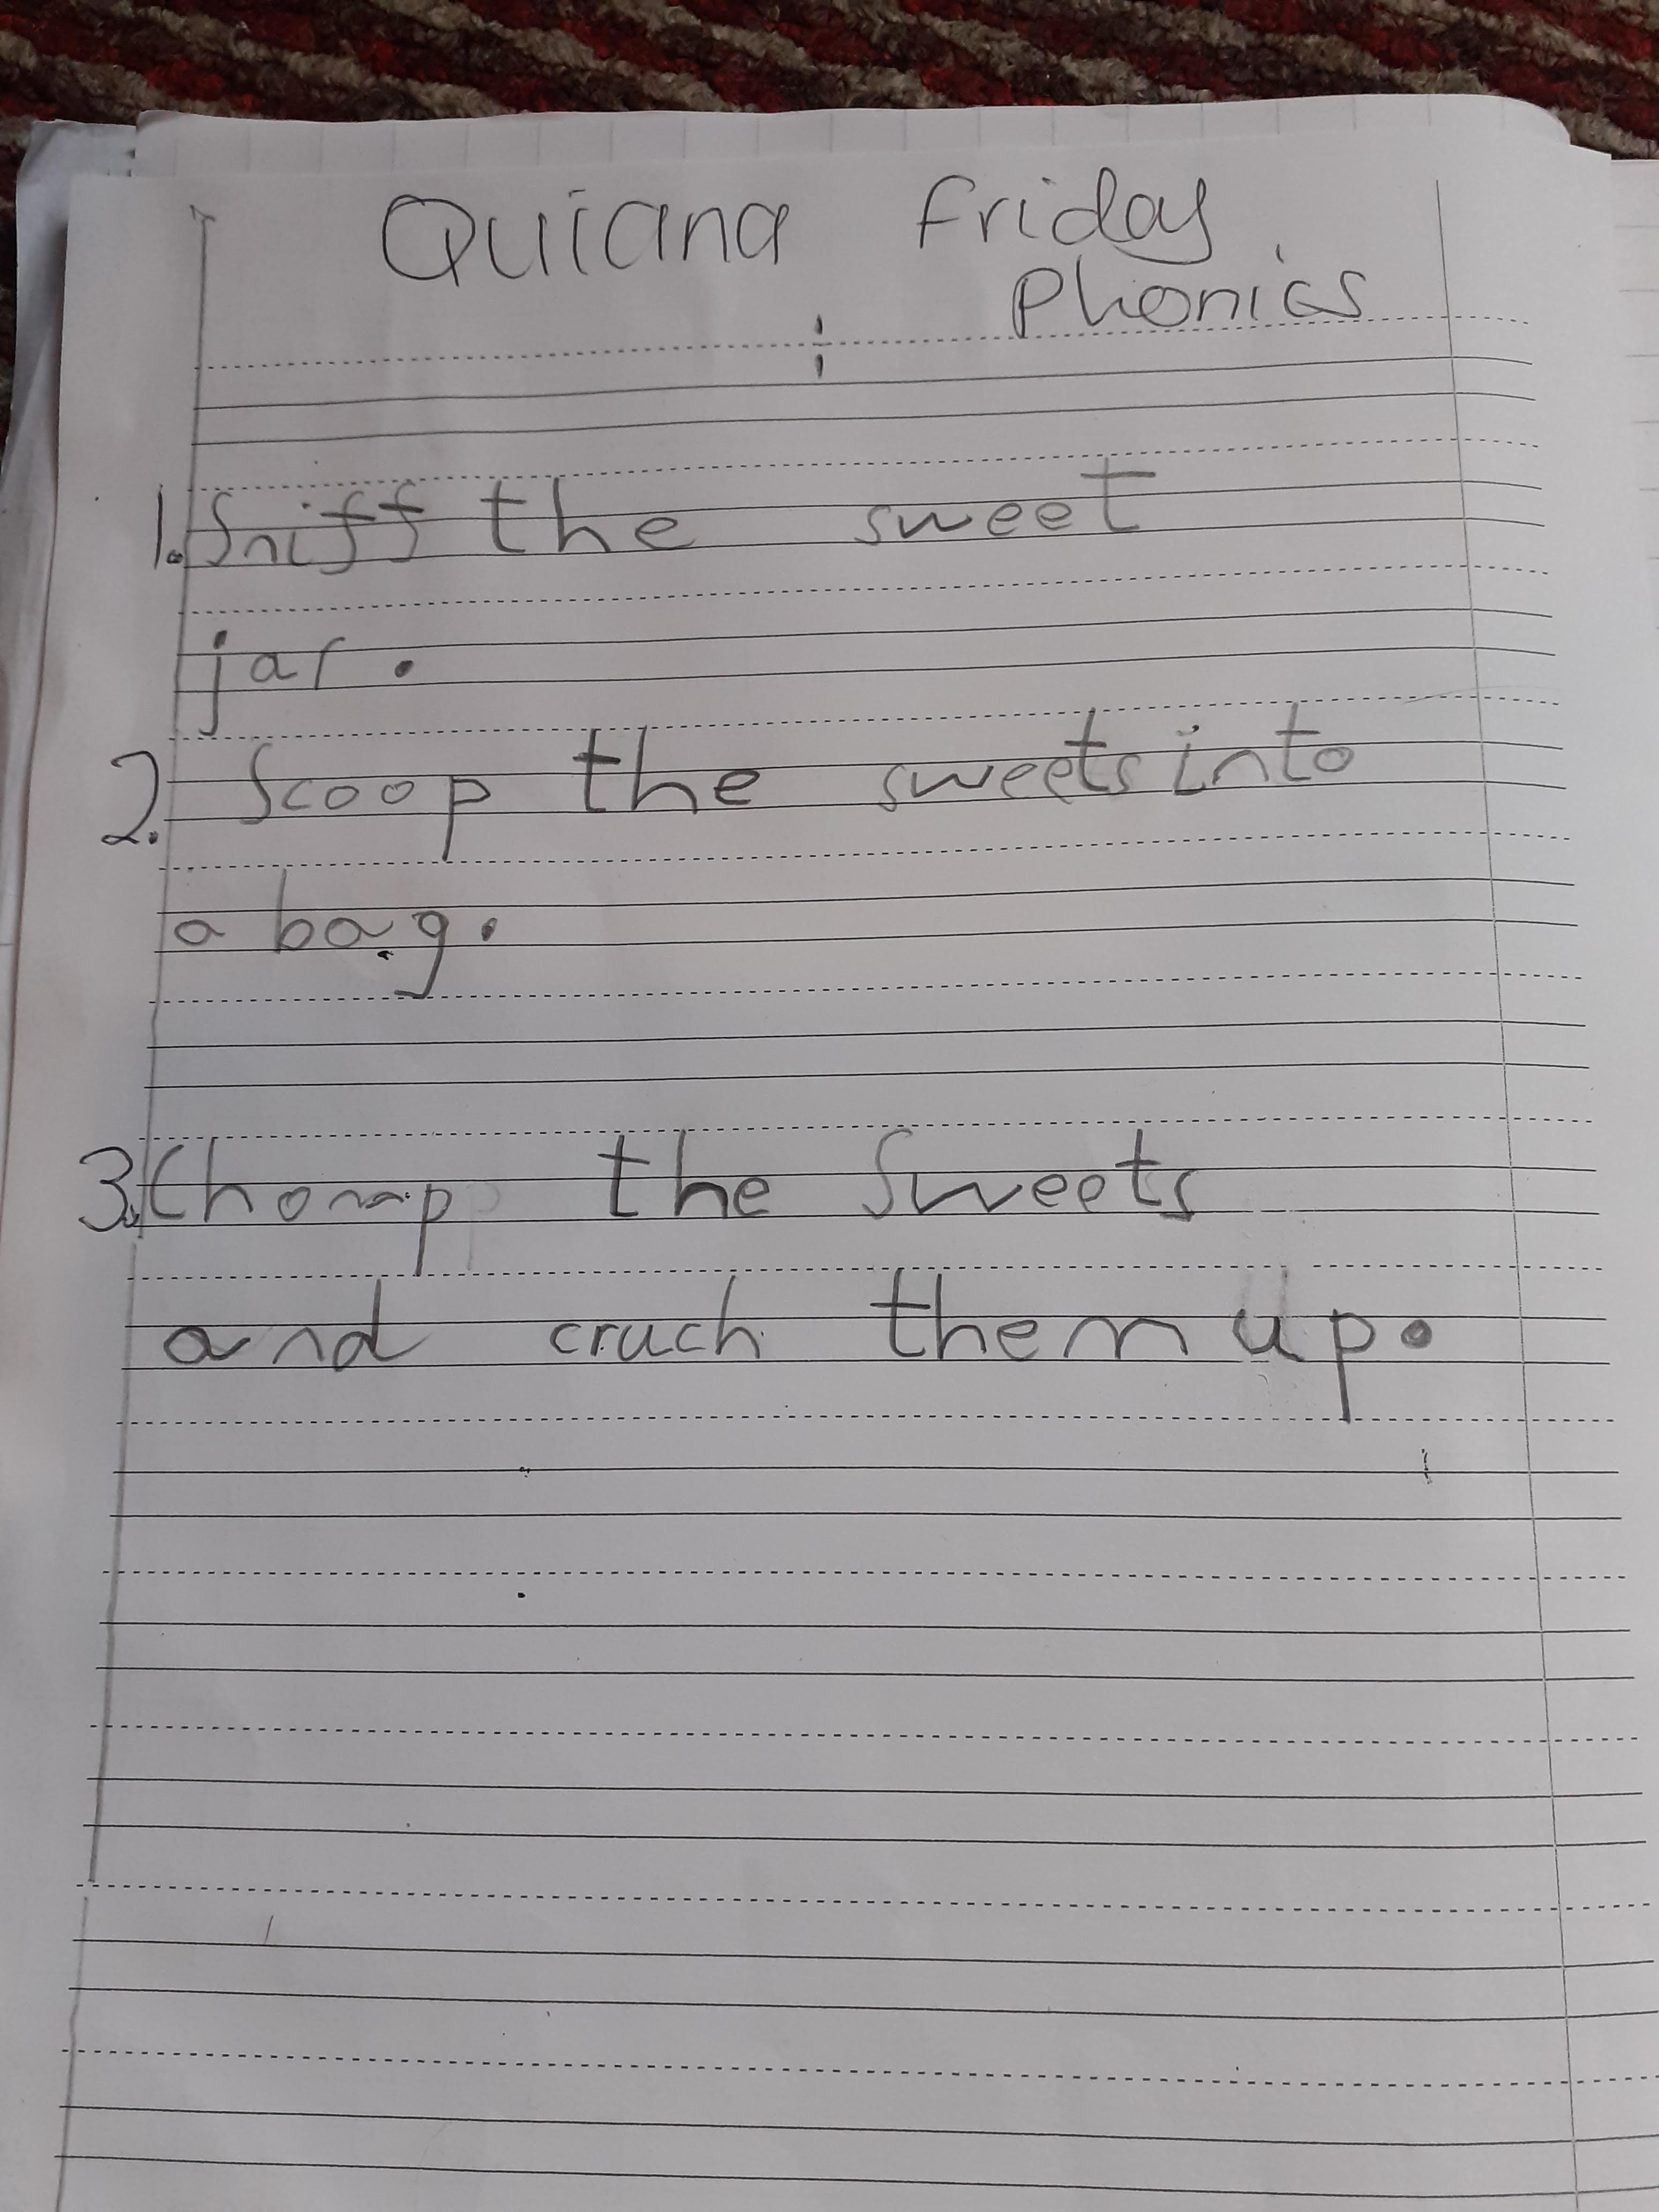 Quiana Friday
Phonics
1. Sniff the sweet
jar.
2. Scoop the sweets into
a bag.
3. Chomp the Sweets
and cruch them up.